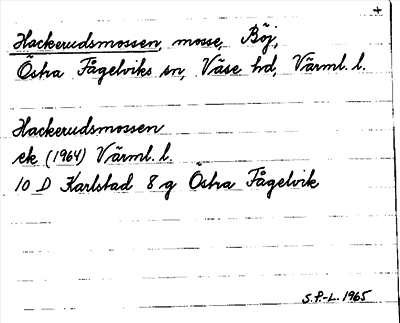 +
Hackerudsmossen, mosse, Böj,
Östra Fågelviks sn, Väse hd, Värml. l.
Hackerudsmossen
ek (1964) Värml. l.
10 D Karlstad 8 g Östra Fågelvik
S.P.-L. 1965